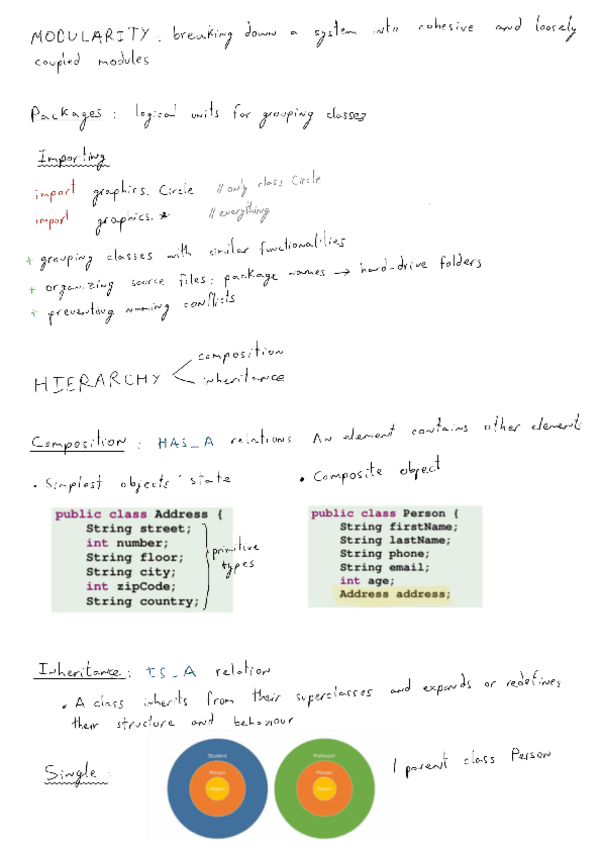 MODULARITY : breaking down a system into cohesive and loosely
coupled modules
Packages : logical units for grouping classes
Importing
import graphics. Circle // only class Circle
import graphics. * // everything
+ grouping classes with similar functionalities
+ organizing source files: package names → hard-drive folders
+ preventing naming conflicts
HIERARCHY
composition
inheritance
Composition : HAS_A relations An element contains other element
• Simplest objects' state
• Composite object
public class Address {
String street;
int number;
String floor;
String city;
int zipCode;
String country;
primitive
types
public class Person {
String firstName;
String lastName;
String phone;
String email;
int age;
Address address;
Inheritance : IS_A relation
• A class inherits from their superclasses and expands or redefines
their structure and behaviour
Single :
Student
Person
Object
Professor
Person
Object
1 parent class Person